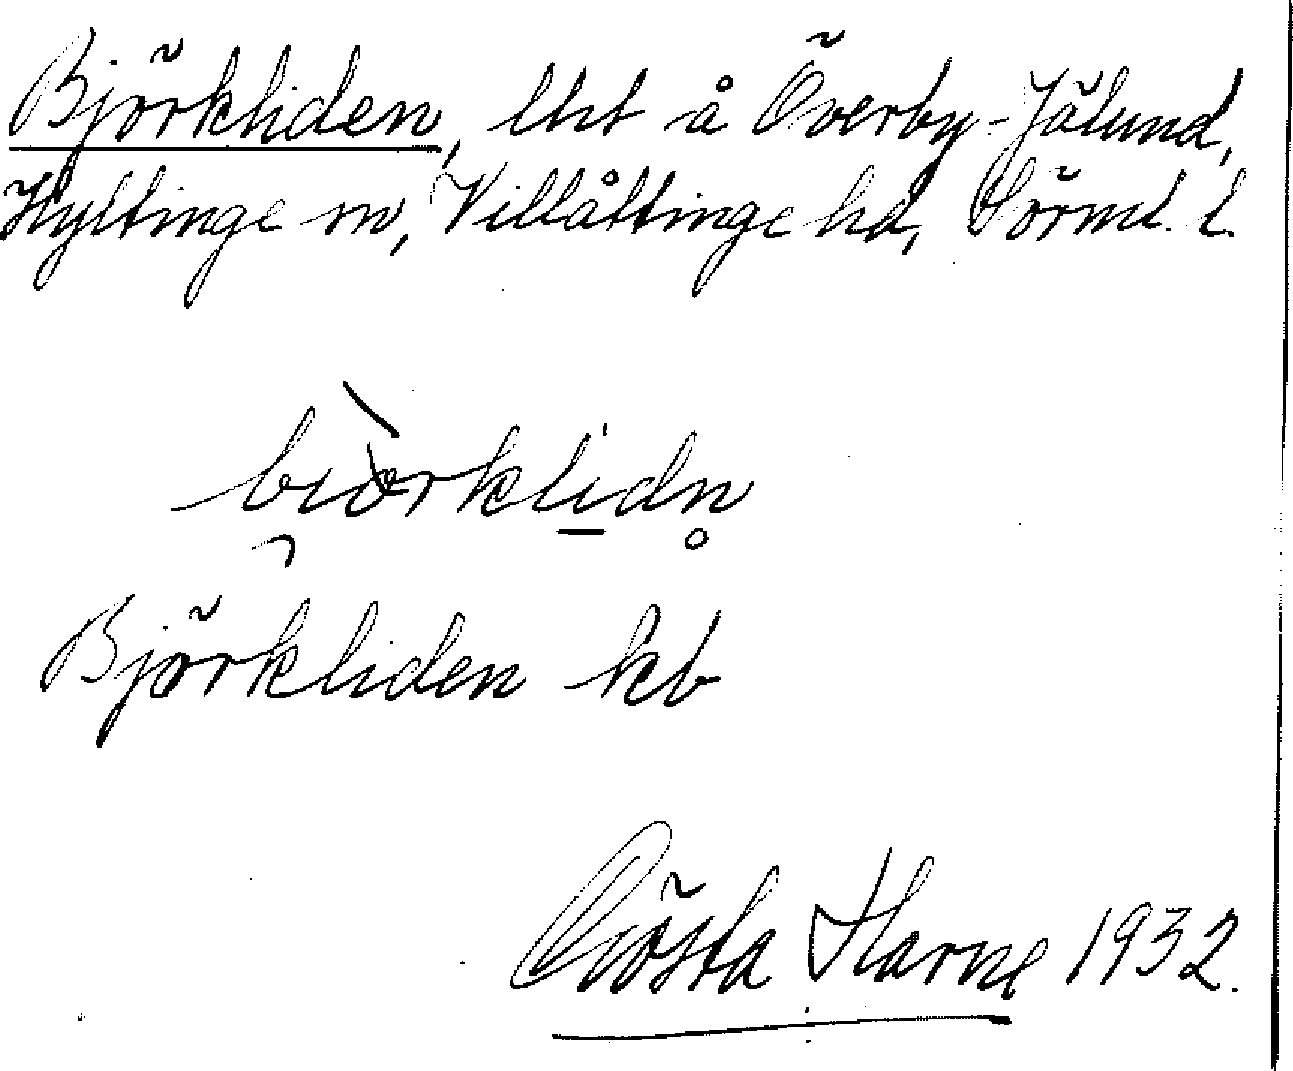 Björkliden, lht å Överby-Jälund,
Hyltinge sn, Villåttinge hd, Sörml. l.
biòrklidn̥
Björkliden kb
Gösta Harne 1932.